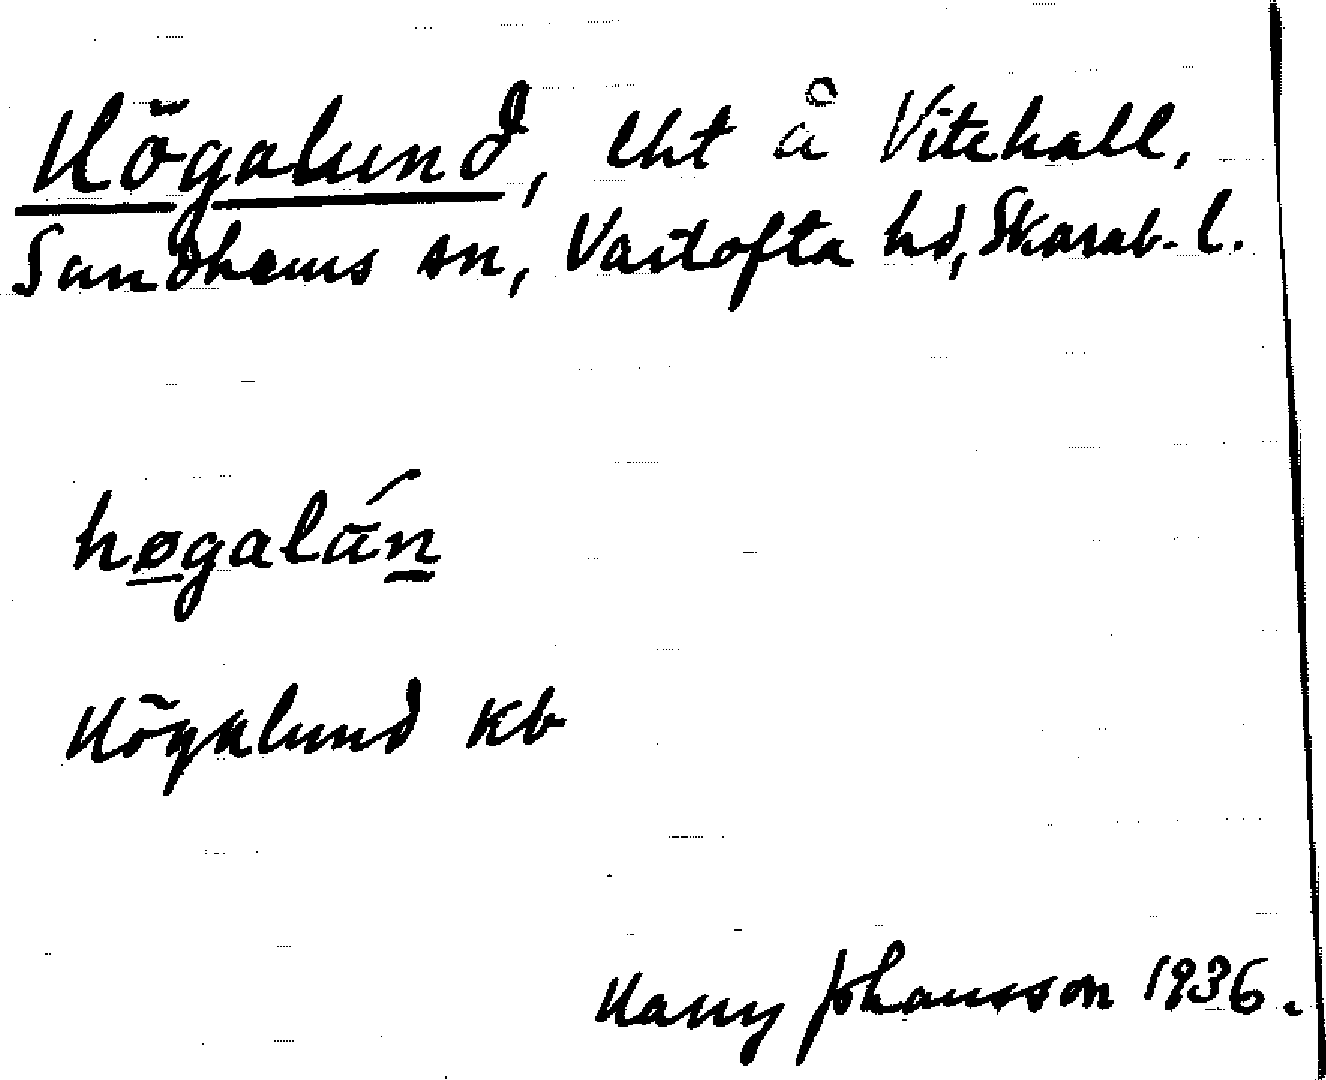 Högalund, lht å Vitehall,
Sandhems sn, Vartofta hd, Skarab. l.
høgalán
Högalund kb
Harry Johansson 1936.